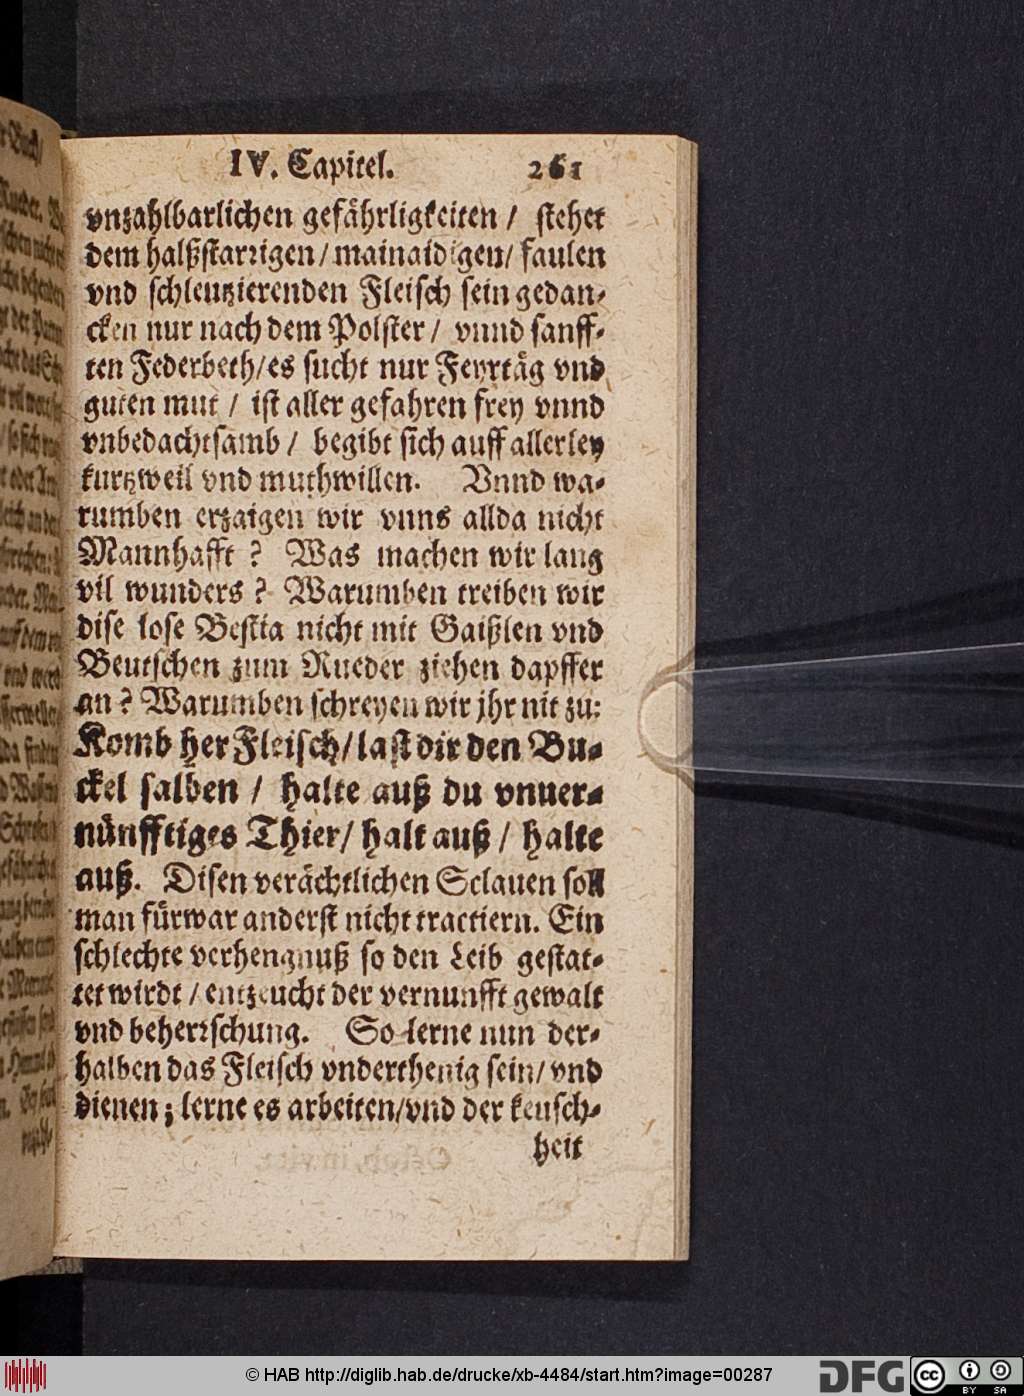 IV. Capitel. 261
vnzahlbarlichen gefährligkeiten / stehet
dem halßstarrigen / mainaidigen / faulen
vnd schleutzierenden Fleisch sein gedan-
cken nur nach dem Polster / vnnd sanff-
ten Federbeth / es sucht nur Feyrtäg vnd
guten mut / ist aller gefahren frey vnnd
vnbedachtsamb / begibt sich auff allerley
kurtzweil vnd muthwillen. Vnnd wa-
rumben erzaigen wir vnns allda nicht
Mannhafft ? Was machen wir lang
vil wunders ? Warumben treiben wir
dise lose Bestia nicht mit Gaißlen vnd
Beutschen zum Rueder ziehen dapffer
an ? Warumben schreyen wir jhr nit zu:
Komb her Fleisch / last dir den Bu-
ckel salben / halte auß du vnuer-
nünfftiges Thier / halt auß / halte
auß. Disen verächtlichen Sclauen soll
man fürwar anderst nicht tractiern. Ein
schlechte verhengnuß so den Leib gestat-
tet wirdt / entzeucht der vernunfft gewalt
vnd beherrschung. So lerne nun der-
halben das Fleisch vnderthenig sein / vnd
dienen ; lerne es arbeiten / vnd der keusch-
heit
© HAB http://diglib.hab.de/drucke/xb-4484/start.htm?image=00287
DFG
cc
BY SA